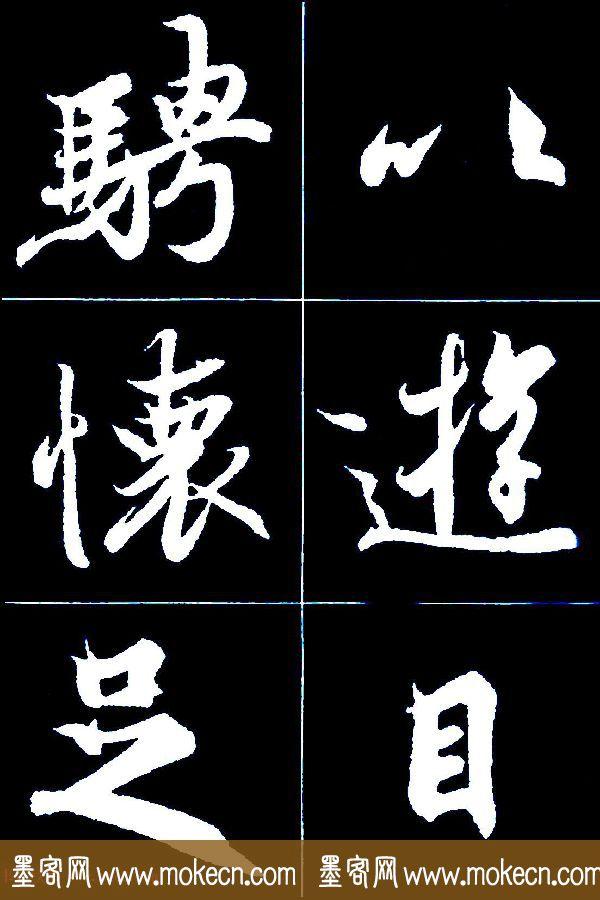 以遊目
騁懷足
墨客网 www.mokecn.com 墨客网 www.mokecn.com